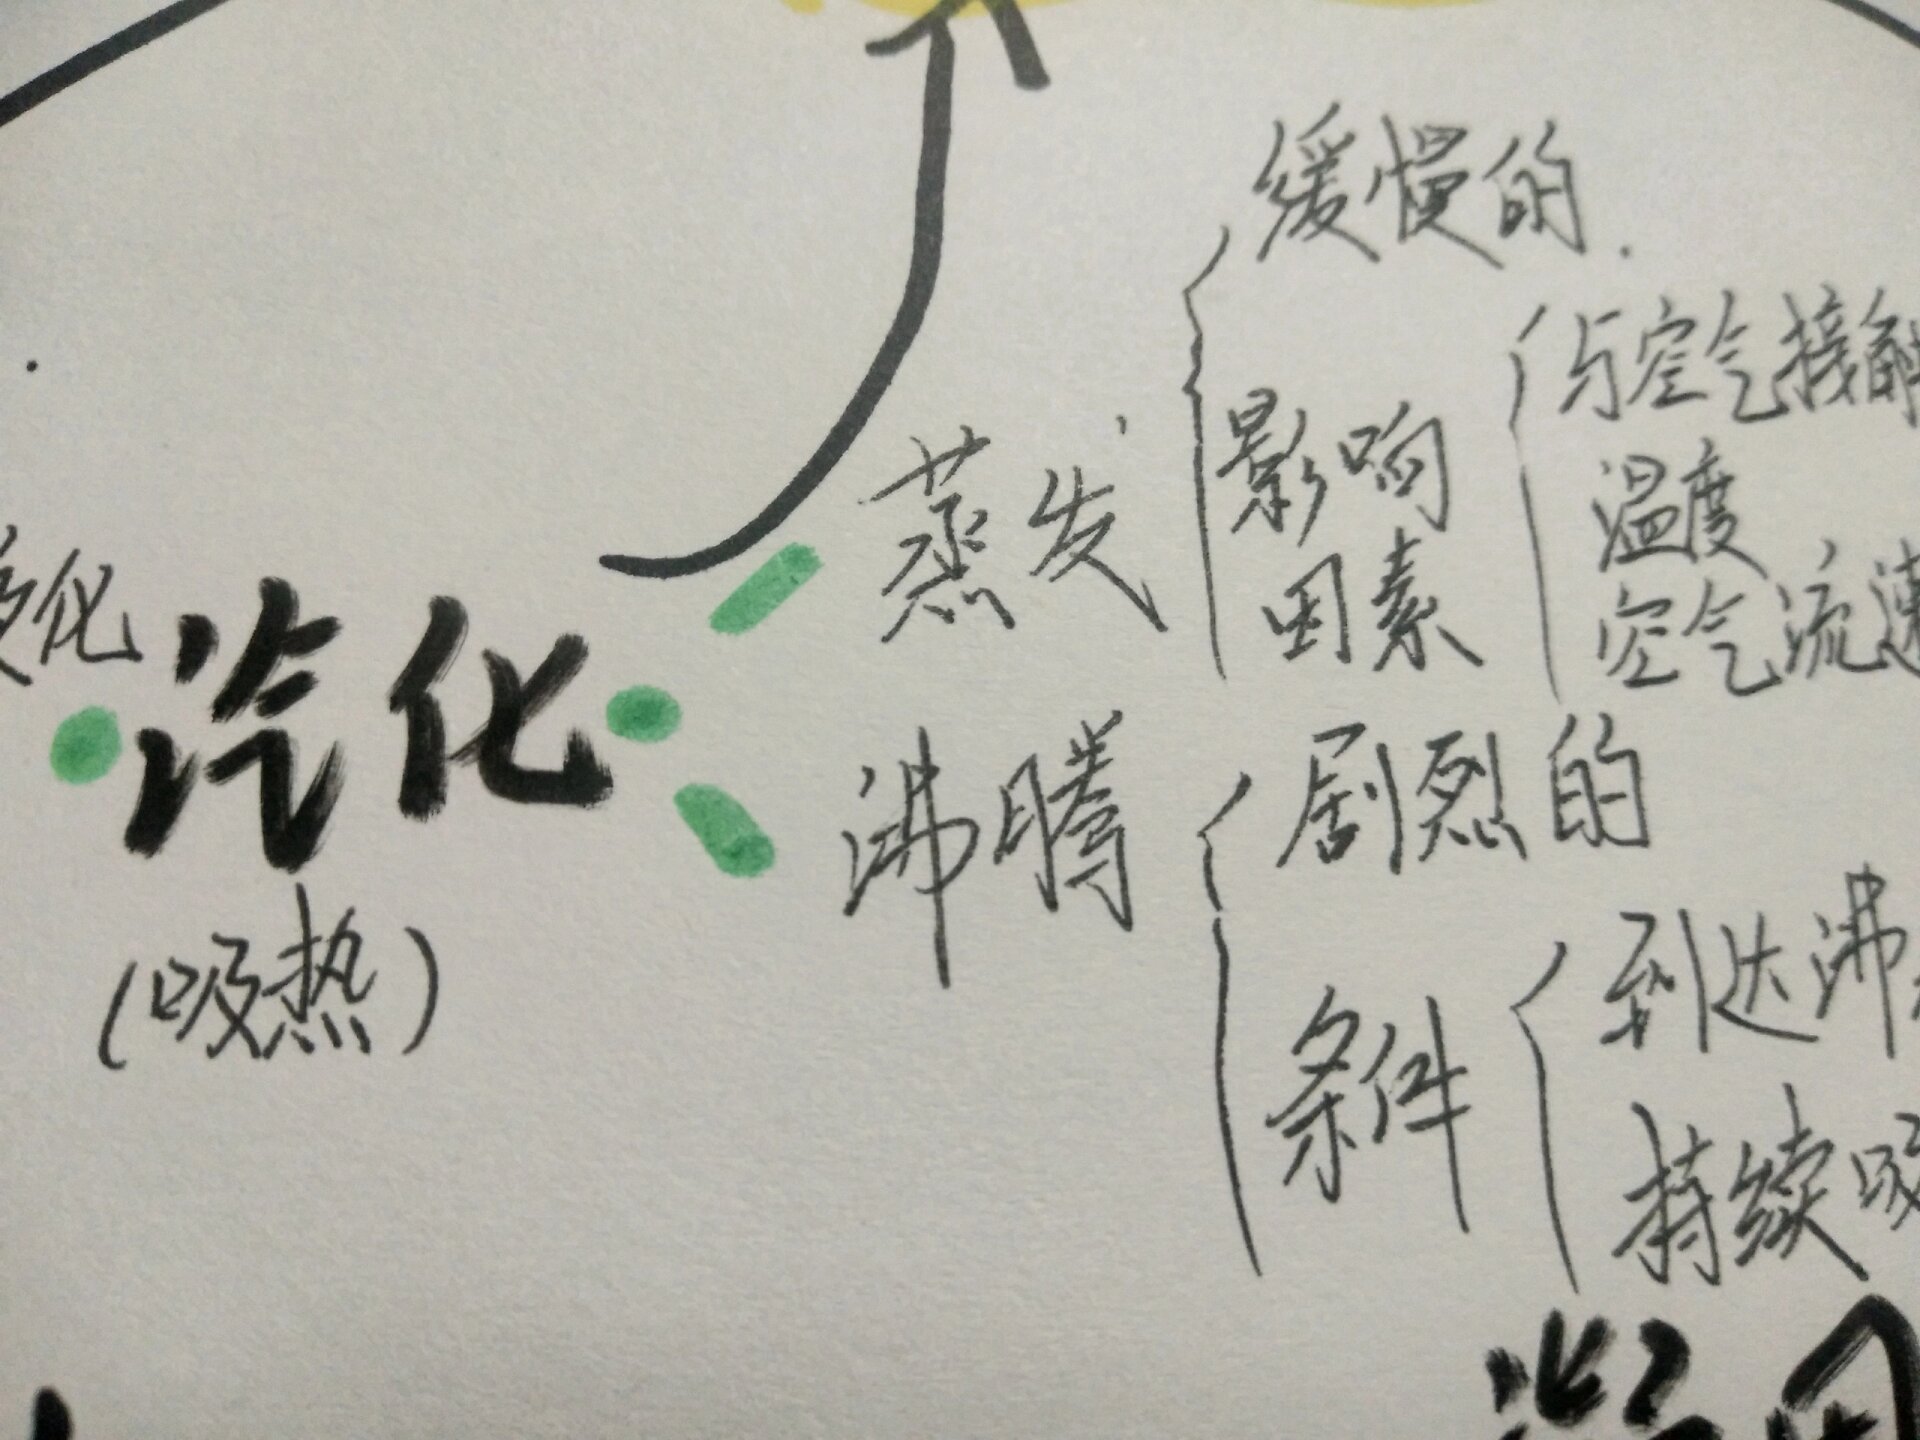 缓慢的
与空气接触
影响
因素
温度
空气流速
蒸发
化
汽化
(吸热)
沸腾
剧烈的
条件
到达沸
持续吸
凝固